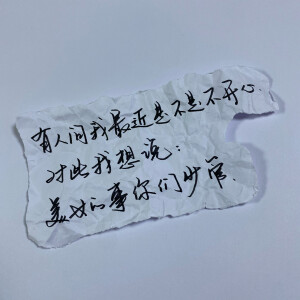 有人问我最近是不是不开心.
对此我想说：
美女的事你们少管.